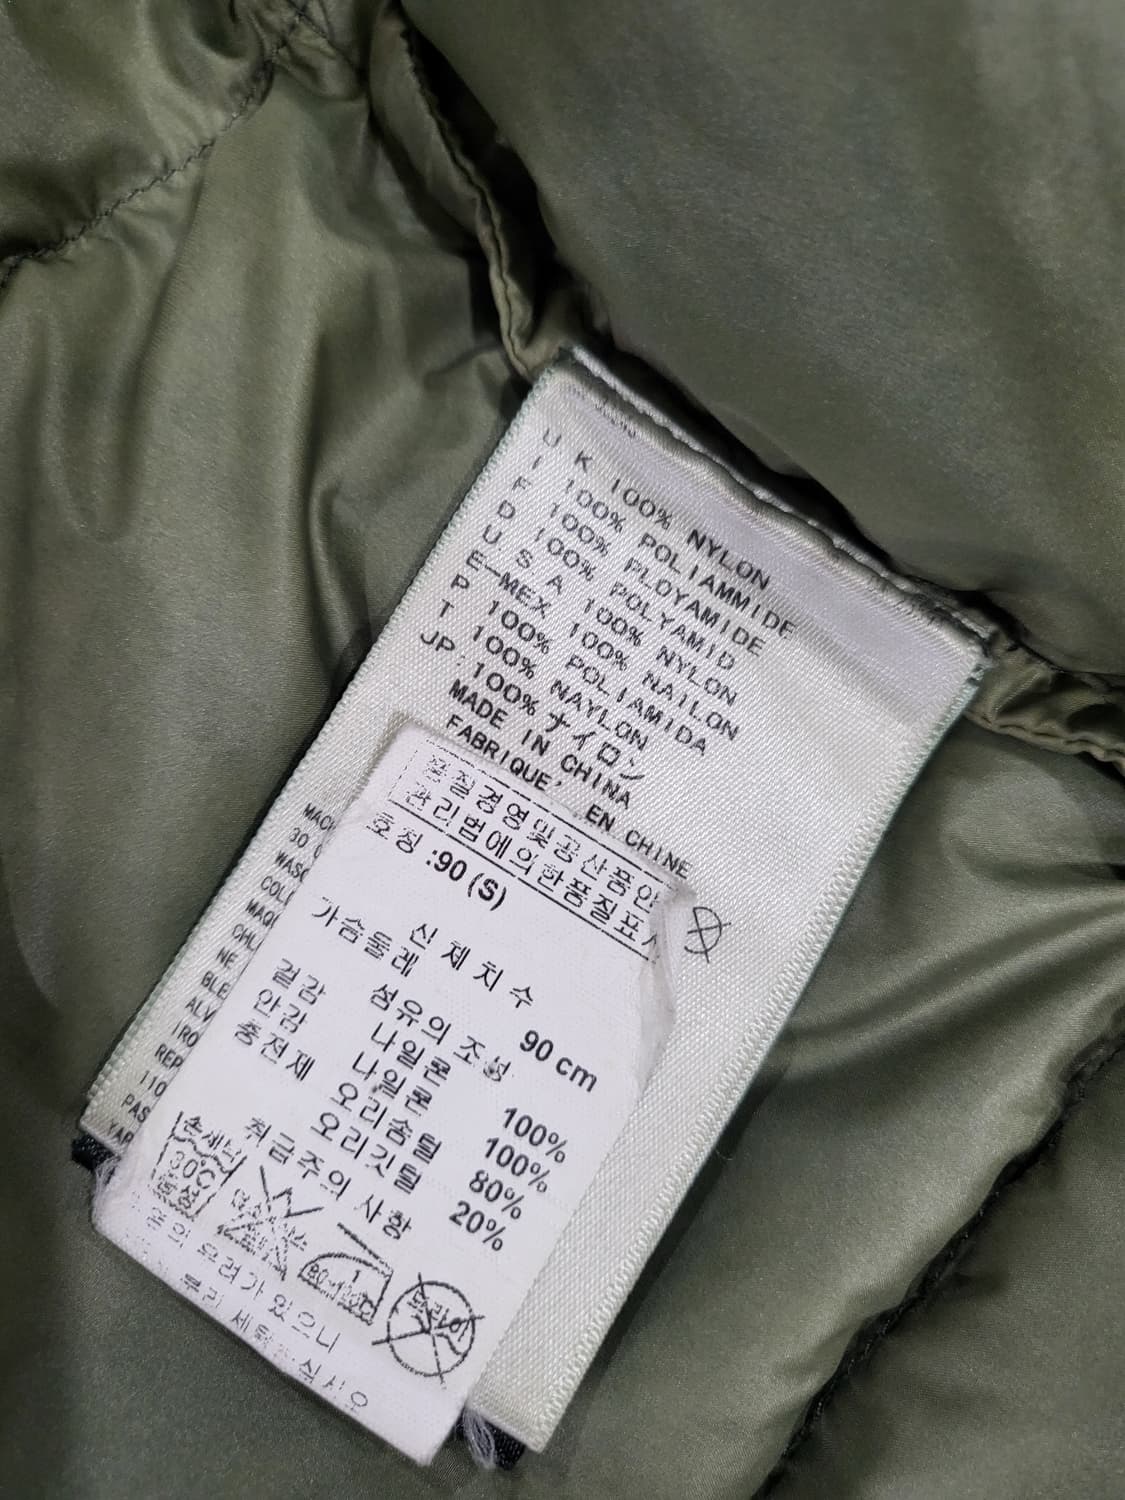 U K 100% NYLON
I 100% POLIAMMIDE
F 100% PLOYAMIDE
D 100% POLYAMID
U. S A 100% NYLON
E-MEX 100% NAILON
P 100% POLIAMIDA
T 100% NAYLON
JP: 100% ナイロン
MADE IN CHINA
FABRIQUE' EN CHINE
MACH
30
WASC
COL
MAQ
CHL
NE
BLE
ALV
IRO
REP
110
PAS
YAP
품질경영및공산품안
관리법에의한품질표
호칭 :90 (S)
신체치수
가슴둘레 90 cm
섬유의 조성
겉감 나일론 100%
안감 나일론 100%
충전제 오리솜털 80%
오리깃털 20%
취급주의 사항
손세탁
30℃
중성
80~120℃
드라이
우려가 있으니
십시오